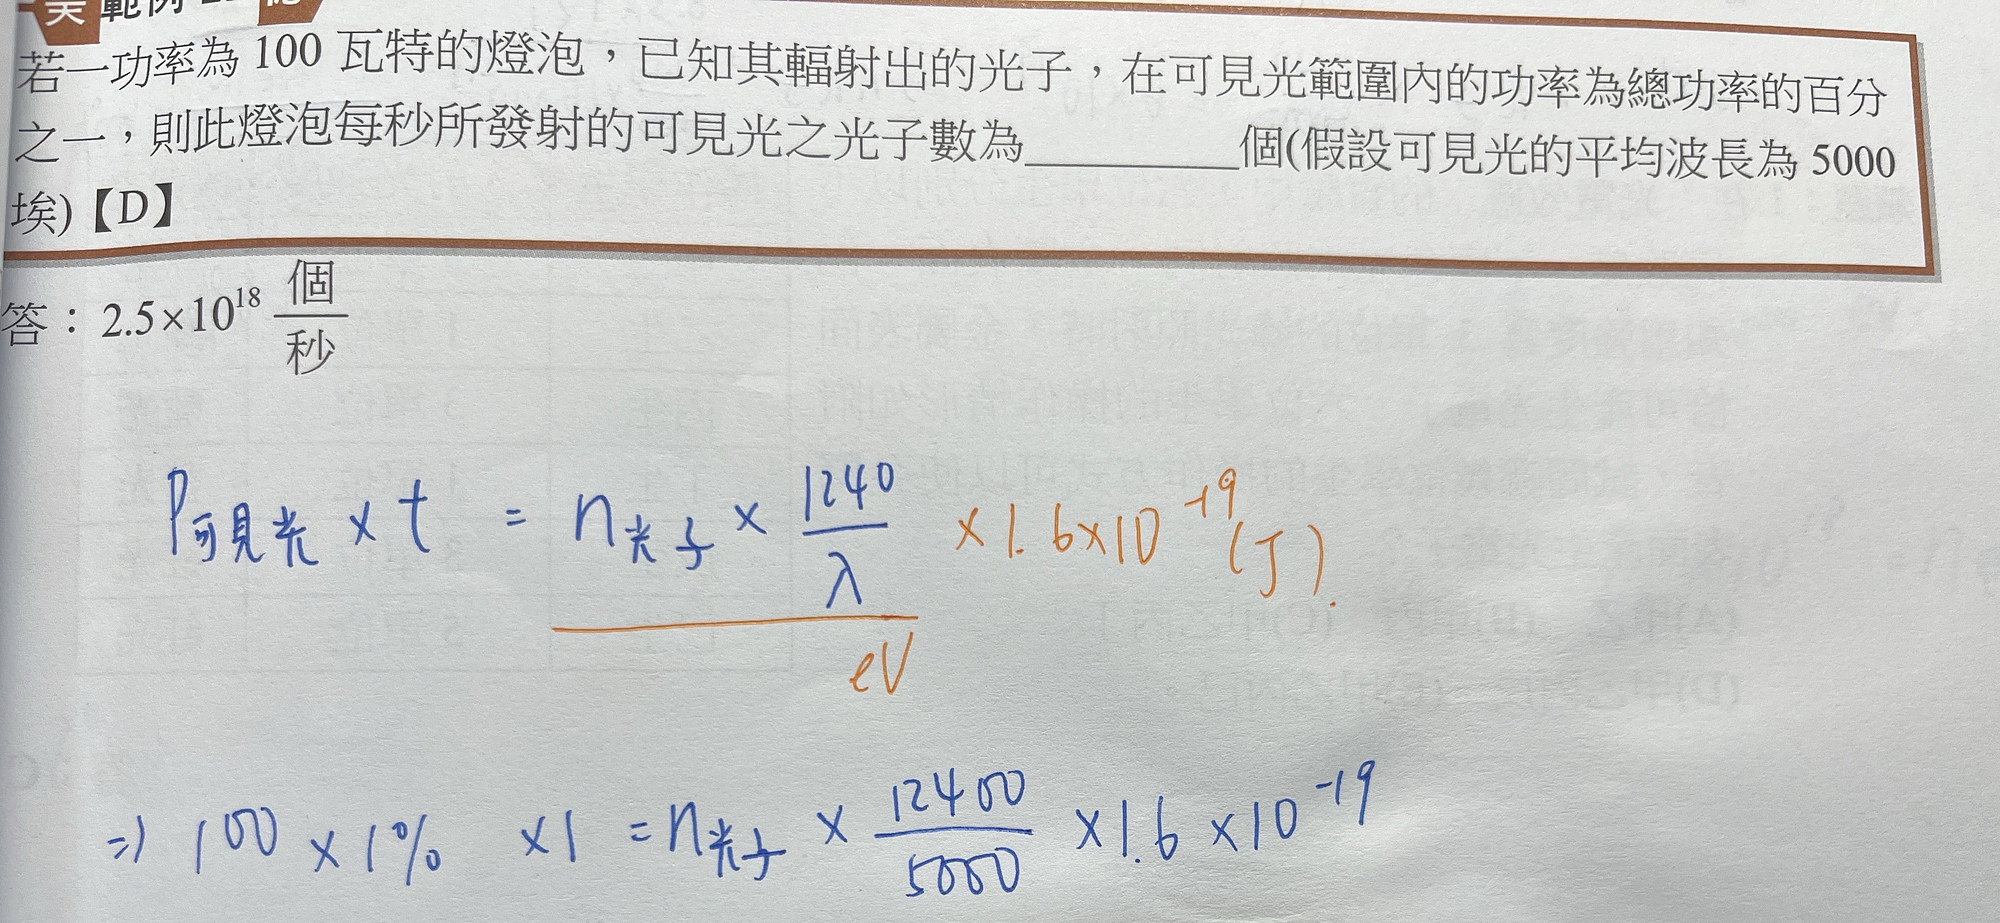 範例
若一功率為 100 瓦特的燈泡，已知其輻射出的光子，在可見光範圍內的功率為總功率的百分
之一，則此燈泡每秒所發射的可見光之光子數為________個(假設可見光的平均波長為 5000
埃)【D】
答：2.5×10^18 個/秒
P可見光 × t = n光子 × 1240/λ × 1.6×10^-19 (J).
eV
⇒ 100 × 1% × 1 = n光子 × 12400/5000 × 1.6 × 10^-19